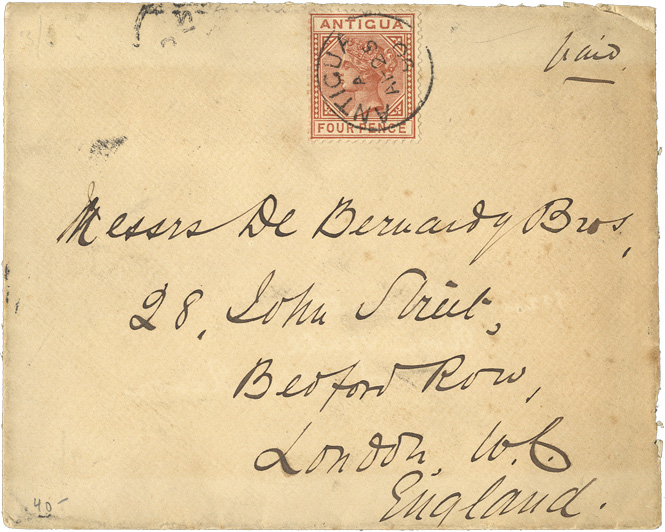 ANTIGUA
FOUR PENCE
ANTIGUA
A
paid.
Messrs De Bernardy Bros,
28, John Street,
Bedford Row,
London, W.C.
England.
40-